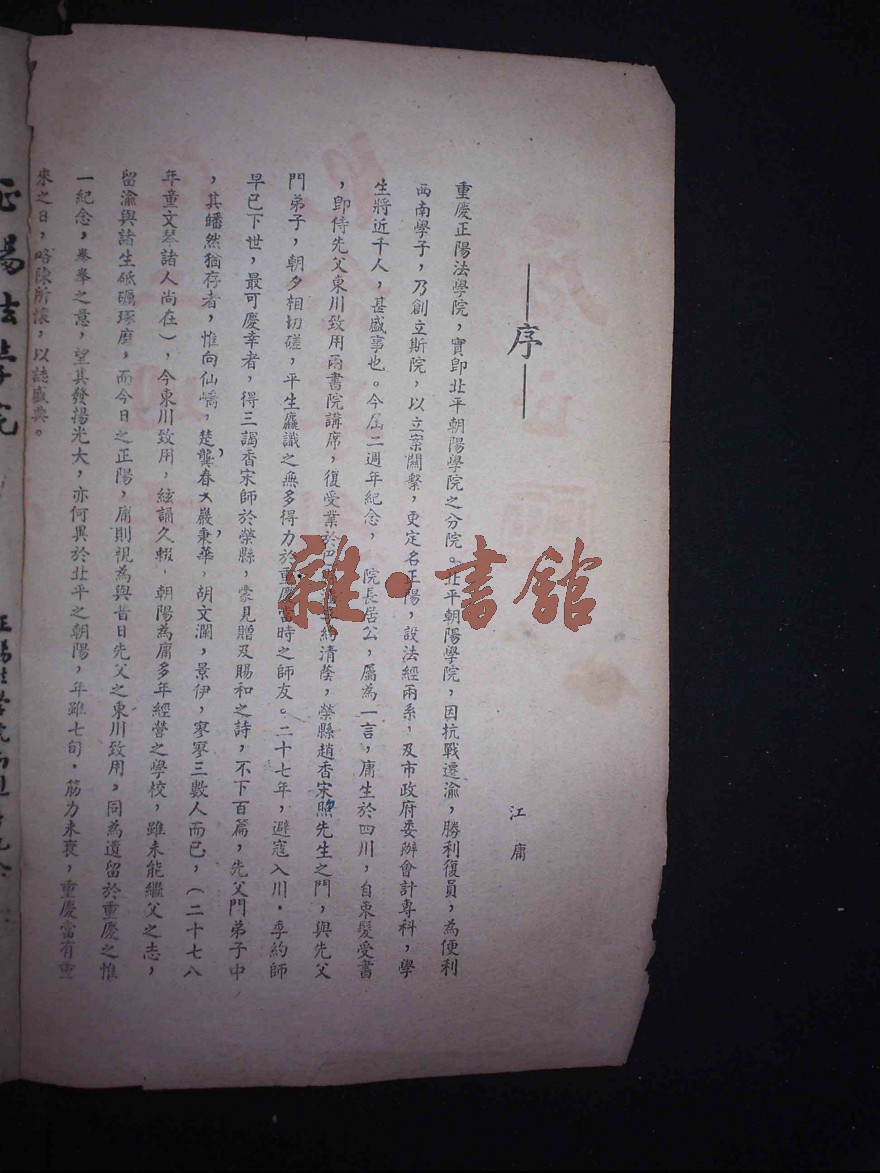 ——序——
江庸
重慶正陽法學院，實即北平朝陽學院之分院。北平朝陽學院，因抗戰遷渝，勝利復員，為便利
西南學子，乃創立斯院，以立案關繫，更定名正陽，設法經兩系，及市政府委辦會計專科，學
生將近千人，甚盛事也。今屆二週年紀念，院長居公，屬為一言，庸生於四川，自束髮受書
，即侍先父東川致用兩書院講席，復受業於巴約清蔭，榮縣趙香宋熙先生之門，與先父
門弟子，朝夕相切磋，平生麤識之無多得力於重慶當時之師友。二十七年，避寇入川，李約師
早已下世，最可慶幸者，得三謁香宋師於榮縣，蒙見贈及賜和之詩，不下百篇，先父門弟子中
，其皤然猶存者，惟向仙喬，楚龔春嚴秉華，胡文瀾，景伊，寥寥三數人而已，（二十七八
年童文琴諸人尚在），今東川致用，絃誦久輟，朝陽為庸多年經營之學校，雖未能繼父之志，
留渝與諸生砥礪琢磨，而今日之正陽，庸則視為與昔日先父之東川致用，同為遺留於重慶之惟
一紀念，拳拳之意，望其發揚光大，亦何異於北平之朝陽，年雖七旬，筋力未衰，重慶當有重
來之日，略陳所懷，以誌盛典。
正陽法學院
雜·書館